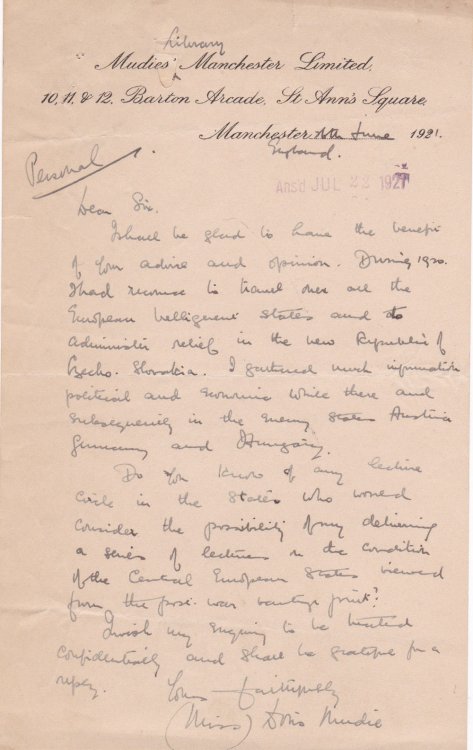 Library
Mudies' Manchester Limited,
10, 11, & 12, Barton Arcade, St Ann's Square,
Manchester, June 1921.
England.
Personal
Ansd JUL 22 1921
Dear Sir.
I shall be glad to have the benefit
of your advice and opinion. During 1920.
I had recourse to travel over all the
European belligerent states and to
administer relief in the new Republic of
Czecho-Slovakia. I gathered much information
political and economic while there and
subsequently in the enemy States Austria
Germany and Hungary.
Do you know of any lecture
circle in the States who would
consider the possibility of my delivering
a series of lectures on the condition
of the Central European States viewed
from the post-war vantage point?
I wish my enquiry to be treated
confidentially and shall be grateful for a
reply.
Yours faithfully
(Miss) Doris Mudie